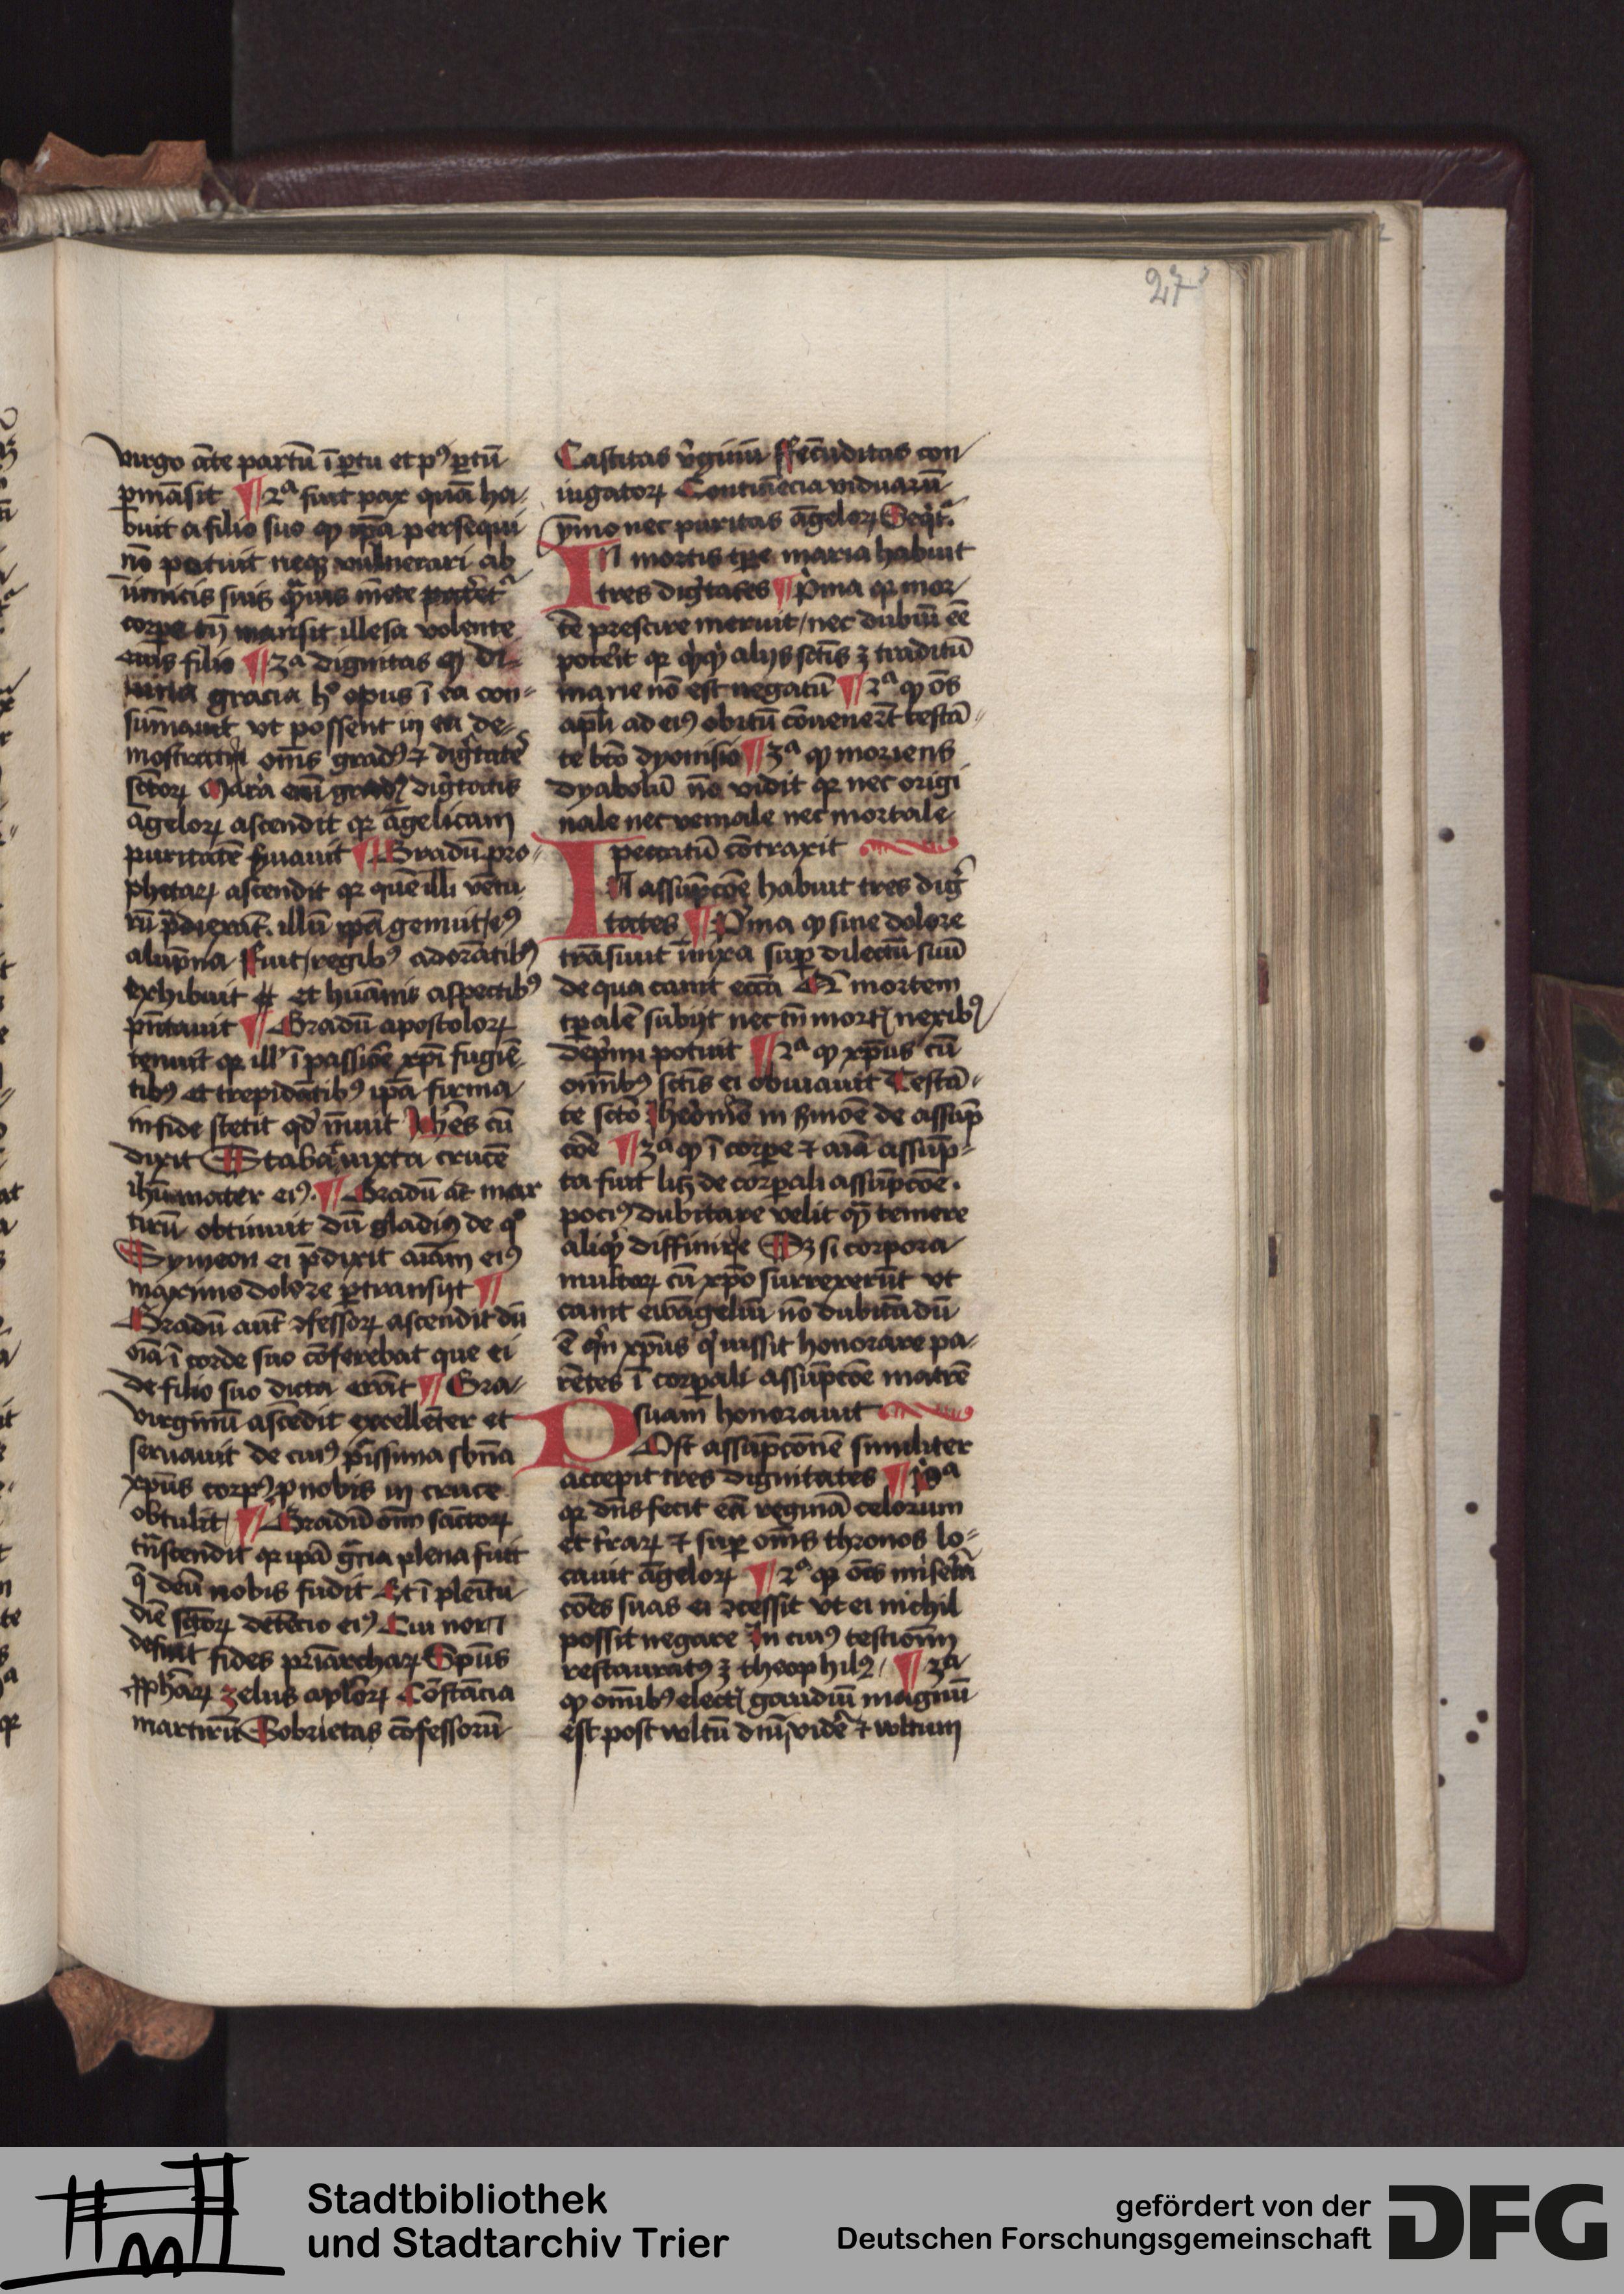 27
virgo āte partū ī ꝑtu et pꝰ ꝑtū
ꝑmāsit ¶ 2ᵃ fuit pax quā ha-
buit a filio suo qꝫ ipā persequi
nō potuit neqꝫ vulnerari ab
inimicis suis q̄uis mēte
corꝑe tn̄ mansit illesa volente
eius filio ¶ 3ᵃ dignitas qꝫ di-
uina gracia hᵒ opus ī ea con-
sum̄auit vt possent in ea de-
mōstrari om̄s gradꝰ ⁊ dig̃tates
sc̄torꝝ Maria em̄ gradꝰ dig̃tatis
āgelorꝝ ascendit qr āgelicam
puritatē ẜuauit ¶ Gradū pro-
phetarꝝ ascendit qr quē illi vētu
rū p̄dixerāt. illū ipā genuit / eiꝰ
alūpna ffuit / regibꝰ adorātibꝰ
exhibuit et hūanis aspectibꝰ
pn̄tauit ¶ Gradū apostolorꝝ
tenuit qr ill' ī passiōe xp̄i fugiē
tibꝰ et trepidātibꝰ ipā firma
in fide stetit qd̓ īnuit Joh̄es cū
dixit Stabat iuxta crucē
ih̄u mater eiꝰ. ¶ Gradū āt mar
tirū obtinuit dū gladiꝰ de qᵒ
Symeon ei p̄dixit aīam eiꝰ
maximo dolore ꝑtransijt ¶
Gradū aūt ꝯfessorꝝ ascendit dū
oīa ī corde suo cōferebat que ei
de filio suo dicta erāt ¶ Gra-
virginū ascēdit excellēter et
seruauit de cuiꝰ p̄issima sbn̄a
xp̄us corpꝰ ꝓ nobis in cruce
obtulit / ¶ Gradū om̄ sāctorꝝ
trāscendit qr ipā gr̄cia plena fuit
q̄ deū nobis fudit Et ī plenitu
diē sc̄torꝝ detēcio eiꝰ Cui non
defuit fides pr̄iarcharꝝ Spūs
ꝓph̄arꝝ zelus apl̄orꝝ Cōstācia
martirū Sobrietas cōfessorū
Castitas v̓ginū ffecūditas con
iugatorꝝ Continēcia viduarū
ymo nec puritas āgelorꝝ Seq̓tᷣ
In mortis tꝑe maria habuit
tres dig̓tates ¶ P̓ma qr mor-
tē prescire meruit / nec dubiū eē
poterit qr qꝫ alijs sc̄tis ꝫ traditū
marie nō est negatū ¶ 2ᵃ qꝫ ōs
apl̄i ad eiꝰ obitū cōuenerūt testā-
te bt̄o dyonisio ¶ 3ᵃ qꝫ moriens
dyabolū nō vidit qr nec origi
nale nec veniale nec mortale
peccatū cōtraxit
In assūpcōe habuit tres dig̓
tates ¶ P̓ma qꝫ sine dolore
trāsiuit īnixa suꝑ dilectū suū
de qua canit ecc̄a N̄ mortem
tꝑalē subijt nec tn̄ mortꝭ nexibꝰ
dep̓mi potuit ¶ 2ᵃ qꝫ xp̄us cū
om̄ibꝰ sc̄tis ei obuiauit Testā-
te sc̄to Jheronīo in ẜmōe de assūp
cōe ¶ 3ᵃ qꝫ ī corꝑe ⁊ aīa assūp-
ta fuit lic̄ꝫ de corꝑali assūpcōe.
pociꝰ dubitare velit q̄ꝫ temere
aliqͥd diffinire Sꝫ si corpora
multorꝝ cū xp̄o surrexerūt vt
canit ewāgeliū nō dubitādū
ē q̓n xp̄us q̓ iussit honorare pa-
rētes ī corꝑali assūpcōe matrē
suam honorauit
Post assūpcōnē similiter
accepit tres dignitates ¶ p̓ᵃ
qr dn̄s fecit eā reginā celorum
et t̓rarꝝ ⁊ suꝑ om̄s thronos lo-
cauit āgelorꝝ ¶ 2ᵃ qr ōes miserā
cōes suas ei ꝯcessit vt ei nichil
possit negare In cuiꝰ testioniū
restauratꝰ ꝫ theophilꝰ / ¶ 3ᵃ
qꝫ om̄ibꝰ electꝭ gaudiū magnū
est post vultū dn̄i vidē ⁊ vultum
Stadtbibliothek
und Stadtarchiv Trier
gefördert von der
Deutschen Forschungsgemeinschaft
DFG